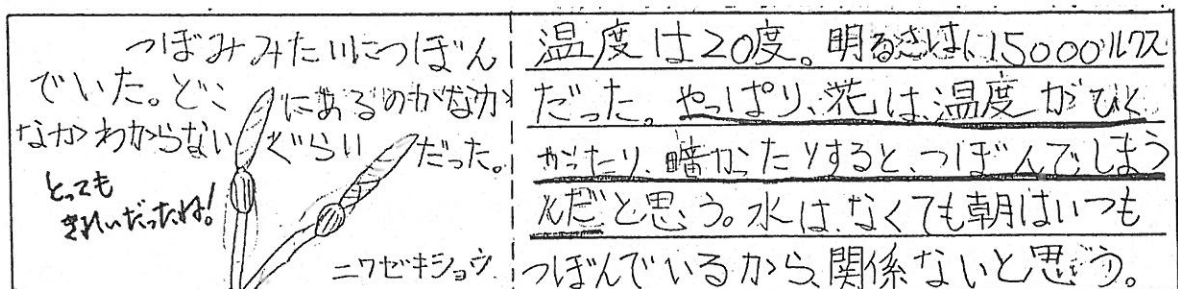 つぼみみたいにつぼん
でいた。どこにあるのがなか
なかわからないぐらいだった。
とっても
きれいだったね!
ニワゼキショウ
温度は20度。明るさは15000ルクス
だった。やっぱり、花は、温度がひく
かったり、暗かったりすると、つぼんでしまう
んだと思う。水は、なくても朝はいつも
つぼんでいるから、関係ないと思う。